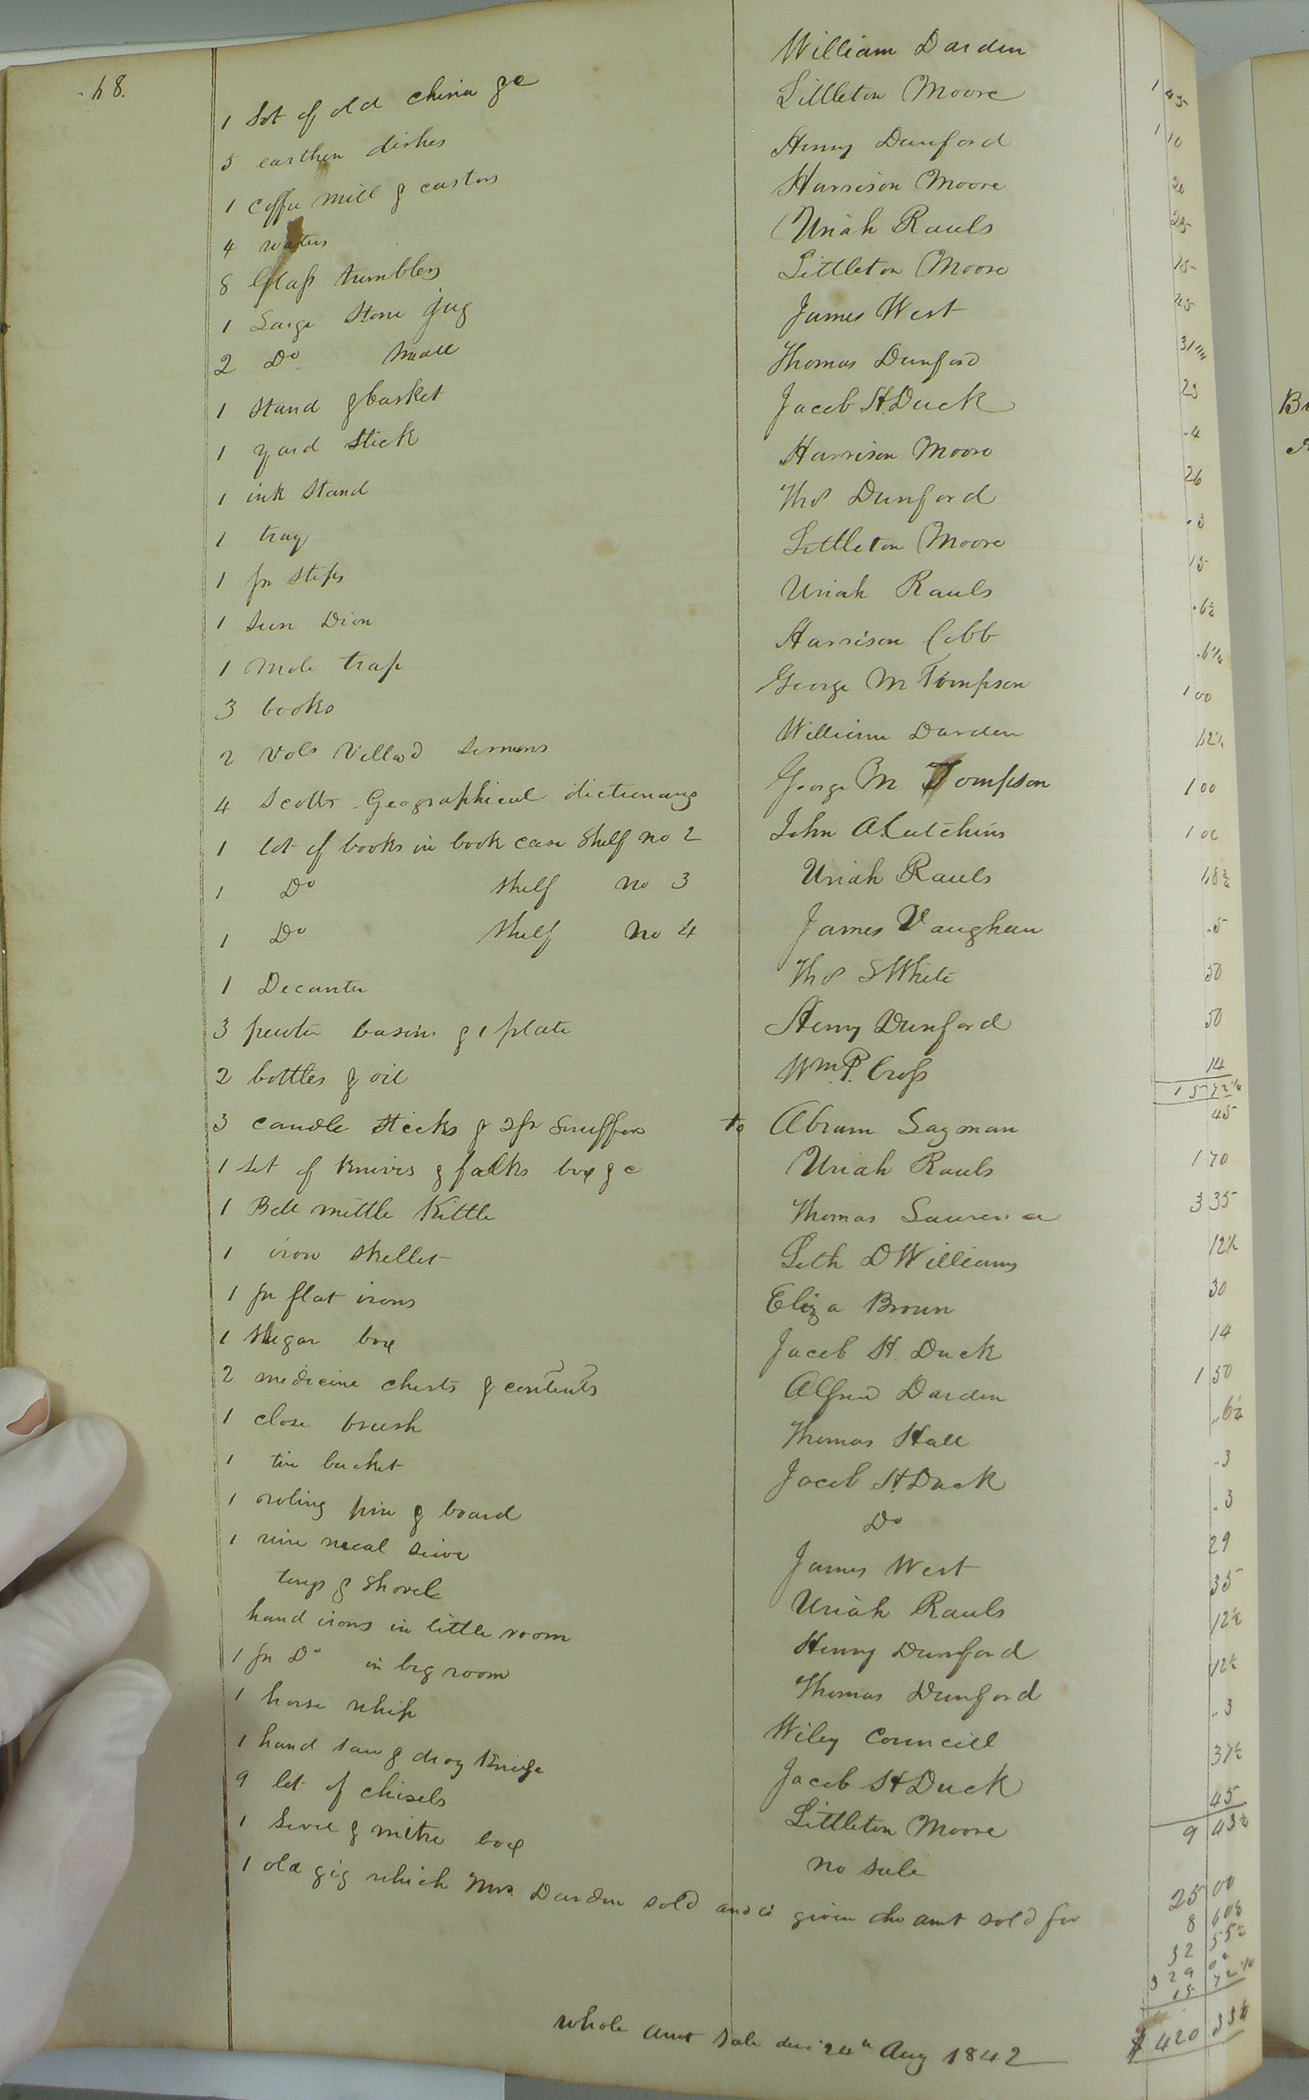 68.
William Darden
1 Lot of old china &c Littleton Moore 1 45
5 earthen dishes Henny Dunford 1 10
1 coffee mill & castors Harrison Moore 20
4 waters Uriah Rauls 25
8 Glass tumblers Littleton Moore 15
1 Large Stone jug James West 45
2 Do small Thomas Dunford 31 1/4
1 stand & basket Jacob H. Duck 25
1 yard Stick Harrison Moore .4
1 ink Stand Thos Dunford 26
1 tray Littleton Moore .3
1 pr Steps Uriah Rauls 15
1 Sun Dion Harrison Cobb .6 1/4
1 Mole trap George M Tompson .6 1/4
3 books William Darden 1 00
2 Vols Villard Sermons George M Tompson 12 1/2
4 Scotts Geographical dictionary John A Cutchins 1 00
1 lot of books in book case Shelf no 2 Uriah Rauls 1 00
1 Do Shelf no 3 James Vaughan 18 3/4
1 Do Shelf no 4 Thos S White .5
1 Decanter Henny Dunford 50
3 pewter basins & 1 plate Wm P. Cross 50
2 bottles & oil 14
15 72 1/4
3 candle Sticks & 2 pr Snuffers to Abram Lagman 45
1 Set of Knives & falks box &c Uriah Rauls 1 70
1 Bell mittle Kittle Thomas Laurence 3 35
1 iron Skellet Seth D Williams 12 1/2
1 pr flat irons Eliza Broun 30
1 Shugar box Jacob H. Duck 14
2 medicine chests & contents Alfred Darden 1 50
1 close brush Thomas Hall .6 1/4
1 tin bucket Jacob H. Duck .3
1 roling pin & board Do .3
1 wire meal sieve James West 29
tongs & Shovel Uriah Rauls 35
hand irons in little room Henny Dunford 12 1/2
1 pr Do in big room Thomas Dunford 12 1/2
1 horse whip Wiley Councill .3
1 hand saw & drag Knife Jacob H Duck 37 1/2
9 lot of chisels Littleton Moore 45
9 43 1/2
1 & mitre box no sale
1 old gig which Mrs Darden sold and is given the amt sold for 25 00
8 60 1/2
32 55 1/2
329
15 72 1/4
whole amt Sale due 24th Aug 1842 $ 420